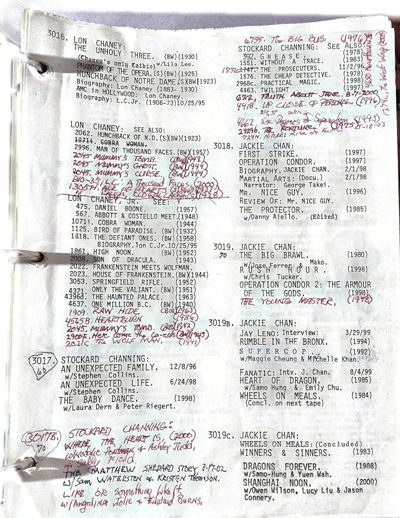 3016. LON CHANEY:
THE UNHOLY THREE. (BW)(1930)
(Chaney's only talkie) w/Lila Lee.
PHANTOM OF THE OPERA.(S)(BW)(1925)
HUNCHBACK OF NOTRE DAME.(S)(BW)(1923)
Biography: Lon Chaney (1883- 1930)
AMC in HOLLYWOOD: Lon Chaney.
Biography: L.C.Jr. (1906-73)10/25/95
LON CHANEY: SEE ALSO:
2062. HUNCHBACK OF N.D.(S)(BW)(1923)
1071i. COBRA WOMAN.
2996. MAN OF THOUSAND FACES.(BW)(1957)
2045. MUMMY'S TOMB.
2045. MUMMY'S GHOST.
2045. MUMMY'S CURSE. (BW)(1944)
LON CHANEY JR. SEE:
475. DANIEL BOONE. (1957)
567. ABBOTT & COSTELLO MEET.(1948)
1071i. COBRA WOMAN (1944)
1125. BIRD OF PARADISE. (BW)(1932)
1318. THE DEFIANT ONES. (BW)(1958)
BIOGRAPHY.lon C.Jr.10/25/95
1861. HIGH NOON. (BW)(1952)
2008. SON OF DRACULA. (1943)
2022. FRANKENSTEIN MEETS WOLFMAN.
2023. HOUSE OF FRANKENSTEIN.(BW)(1944)
3053. SPRINGFIELD RIFLE. (1952)
4371. ONLY THE VALIANT. (BW)(1951)
4396d. THE HAUNTED PALACE. (1963)
4637. ONE MILLION B.C. (BW)(1940)
1909 RAW HIDE.
4565B. HEARTBURN (1986)
2045. MUMMY'S TOMB.
THE WOLF MAN
3017. STOCKARD CHANNING:
60
AN UNEXPECTED FAMILY. 12/8/96
w/Stephen Collins.
AN UNEXPECTED LIFE. 6/24/98
w/Stephen Collins.
THE BABY DANCE. (1998)
w/Laura Dern & Peter Riegert.
3017B. STOCKARD CHANNING:
70
WHERE THE HEART IS, (2000)
w/Natalie Portman & Ashley Judd,
THE MATTHEW SHEPARD STORY 3-17-02
w/Sam WATERSTON & KRISTEN THOMSON.
LIFE OR Something like it
w/Angelina Jolie & Edward Burns,
6755. THE BIG BUS. (1976)
STOCKARD CHANNING: SEE ALSO:
392. GREASE. (1978)
1551. WITHOUT A TRACE. (1983)
THE PROSECUTERS. 11/2/96
1576. THE CHEAP DETECTIVE. (1978)
2968c. PRACTICAL MAGIC. (1998)
4463. TWILIGHT (1998)
TRUTH ABOUT JANE. 8-7-2000
4418. UP CLOSE & PERSONAL (1996)
SIX DEGREES OF SEPARATION (1993)
THE FORTUNE
3018. JACKIE CHAN:
FIRST STRIKE. (1997)
OPERATION CONDOR. (1997)
BIOGRAPHY.JACKIE CHAN. 2/1/98
MARTIAL ARTS: (Docu.) 2/1/98
Narrator: George Takei.
Mr. NICE GUY. (1996)
Review Of: Mr. NICE GUY.
THE PROTECTOR. (1985)
w/Danny Aiello. (Edited)
3019. JACKIE CHAN:
70
THE BIG BRAWL. (1980)
w/Jose Ferrer & Mako.
RUSH HOUR. (1998)
w/Chris Tucker.
OPERATION CONDOR 2: THE ARMOUR
OF THE GODS. (1998)
THE YOUNG MASTER,
3019B. JACKIE CHAN:
JAY LENO: Interview: 3/29/99
RUMBLE IN THE BRONX. (1994)
SUPERCOP. (1992)
w/Maggie Cheung & Michelle Khan.
FANATIC: Intv. J. Chan. 8/4/99
HEART OF DRAGON. (1985)
w/Samo Hung & Emily Chu.
WHEELS ON MEALS. (1984)
(Concl. on next tape)
3019c. JACKIE CHAN:
WHEELS ON MEALS: (Concluded)
WINNERS & SINNERS. (1983)
DRAGONS FOREVER. (1988)
w/Samo-Hung & Yuen Wah.
SHANGHAI NOON. (2000)
w/Owen Wilson, Lucy Liu & Jason
Connery.